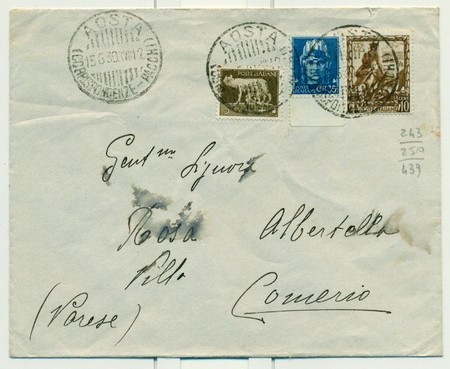 AOSTA
15.6.39.XVII 12
(CORRISPONDENZE PACCHI)
AOSTA
POSTE ITALIANE
10
243
250
439
Gent.ma Signora
Rosa Albertella
Villa
Comerio
(Varese)